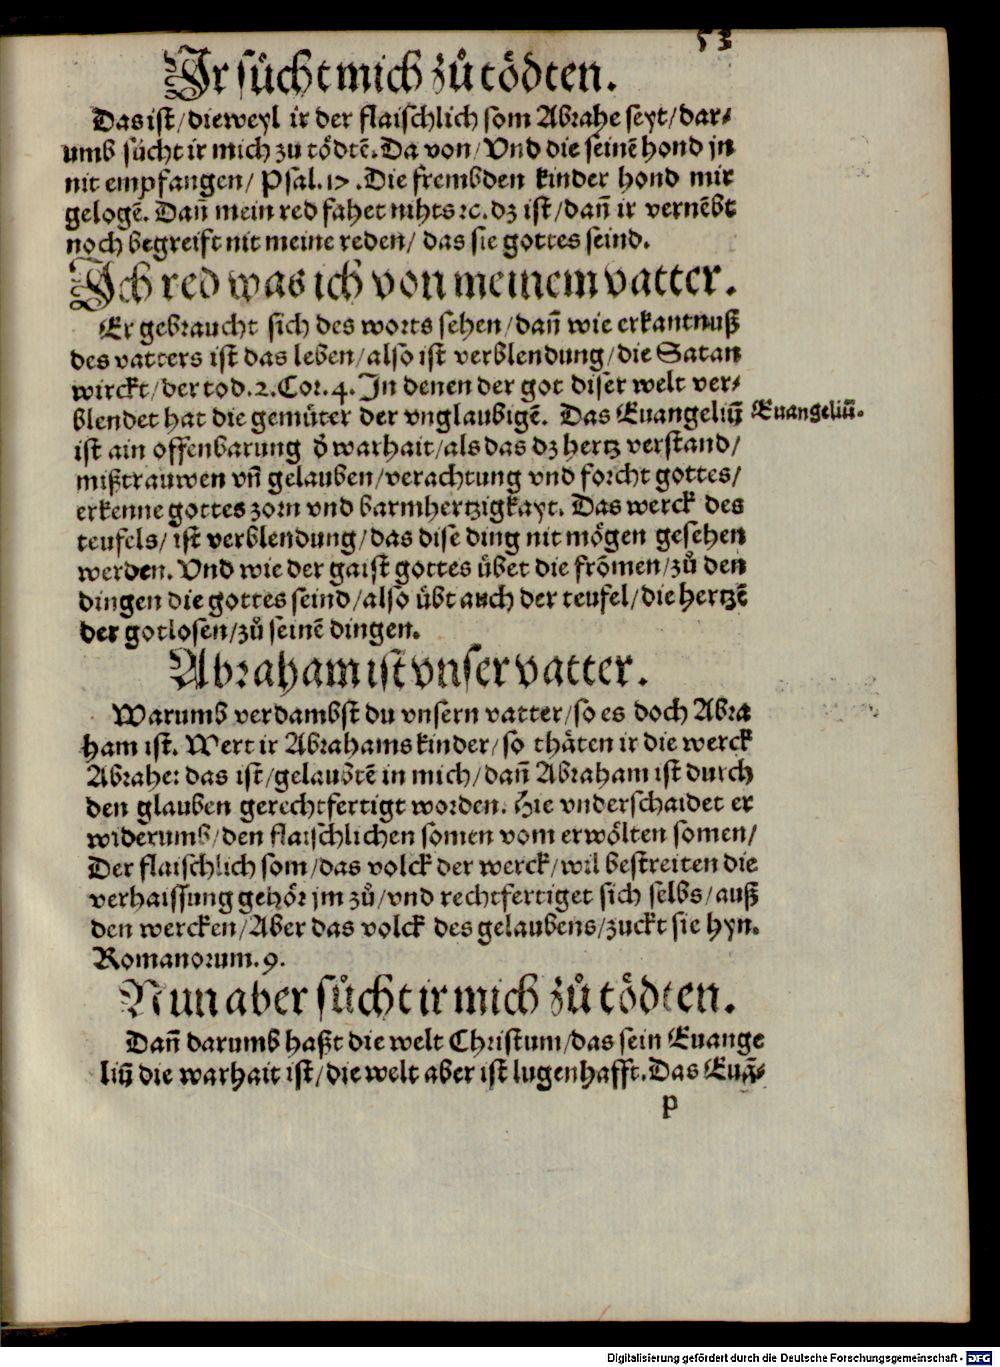 53
Ir sůcht mich zů tödten.
Das ist/dieweyl ir der flaischlich som Abrahe seyt/dar⸗
umb sůcht ir mich zu tödtē. Da von/Vnd die seinē hond jn
nit empfangen/ Psal.17. Die frembden kinder hond mir
gelogē. Dañ mein red fahet nihts ꝛc. dz ist/dañ ir vernēbt
noch begreift nit meine reden/ das sie gottes seind.
Ich red was ich von meinem vatter.
Er gebraucht sich des worts sehen/dañ wie erkantnuß
des vatters ist das leben/also ist verblendung/die Satan
wirckt/der tod.2.Cor.4. In denen der got diser welt ver⸗
blendet hat die gemüter der vnglaubigē. Das Euangeliū
Euangeliū.
ist ain offenbarung ð warhait/als das dz hertz verstand/
mißtrauwen vñ gelauben/verachtung vnd forcht gottes/
erkenne gottes zorn vnd barmhertzigkayt. Das werck des
teufels/ ist verblendung/das dise ding nit mögen gesehen
werden. Vnd wie der gaist gottes übet die frömen/zů den
dingen die gottes seind/also übt auch der teufel/die hertzē
der gotlosen/zů seinē dingen.
Abraham ist vnser vatter.
Warumb verdambst du vnsern vatter/so es doch Abra
ham ist. Wert ir Abrahams kinder/so thäten ir die werck
Abrahe: das ist/gelaubtē in mich/dañ Abraham ist durch
den glauben gerechtfertigt worden. Hie vnderschaidet er
widerumb/den flaischlichen somen vom erwölten somen/
Der flaischlich som/das volck der werck/wil bestreiten die
verhaissung gehör jm zů/vnd rechtfertiget sich selbs/auß
den wercken/Aber das volck des gelaubens/zuckt sie hyn.
Romanorum.9.
Nun aber sůcht ir mich zů tödten.
Dañ darumb haßt die welt Christum/das sein Euange
liū die warhait ist/die welt aber ist lugenhafft. Das Euā⸗
p
Digitalisierung gefördert durch die Deutsche Forschungsgemeinschaft - DFG